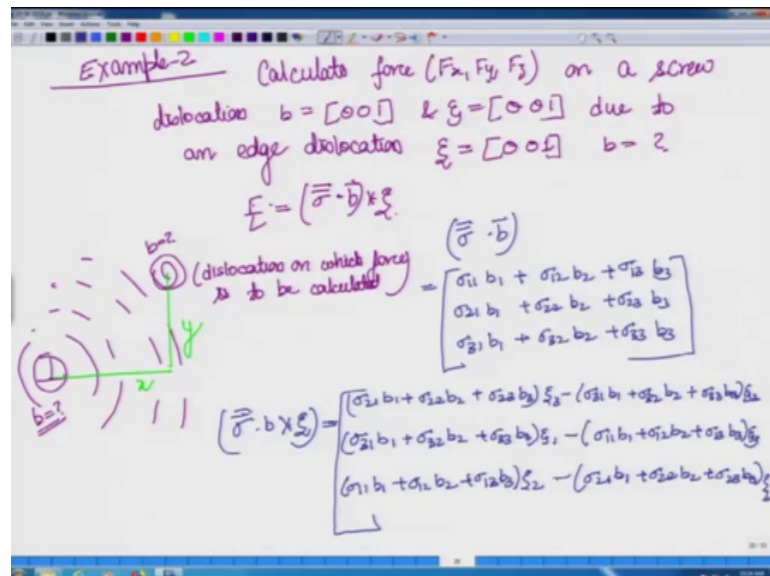 Example-2 Calculate force (Fx, Fy, Fz) on a screw
dislocation b = [001] & ξ = [001] due to
an edge dislocation ξ = [001] b = ?
F = (σ̿ · b⃗) × ξ
b=?
(dislocation on which force
is to be calculated)
(σ̿ · b⃗)
= [σ11 b1 + σ12 b2 + σ13 b3
σ21 b1 + σ22 b2 + σ23 b3
σ31 b1 + σ32 b2 + σ33 b3]
y
x
b=?
(σ̿ · b × ξ) = [(σ21 b1 + σ22 b2 + σ23 b3) ξ3 − (σ31 b1 + σ32 b2 + σ33 b3) ξ2
(σ31 b1 + σ32 b2 + σ33 b3) ξ1 − (σ11 b1 + σ12 b2 + σ13 b3) ξ3
(σ11 b1 + σ12 b2 + σ13 b3) ξ2 − (σ21 b1 + σ22 b2 + σ23 b3) ξ1